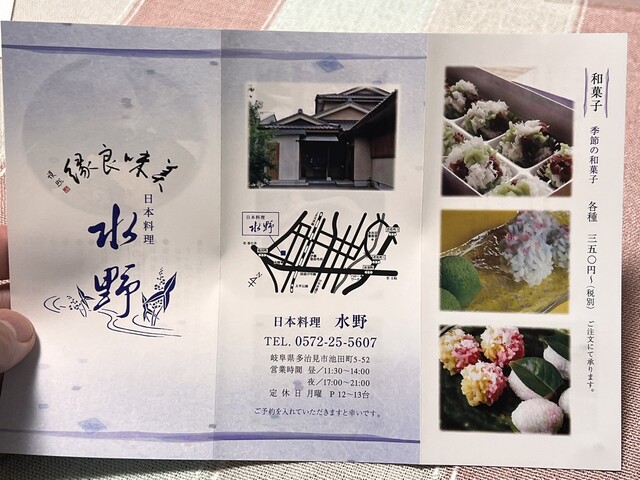 美味良縁
日本料理
水野
日本料理
水野
日本料理 水野
TEL. 0572-25-5607
岐阜県多治見市池田町5-52
営業時間 昼/11:30~14:00
夜/17:00~21:00
定休日 月曜 P 12~13台
ご予約を入れていただきますと幸いです。
和菓子
季節の和菓子 各種 三五〇円~(税別) ご注文にて承ります。